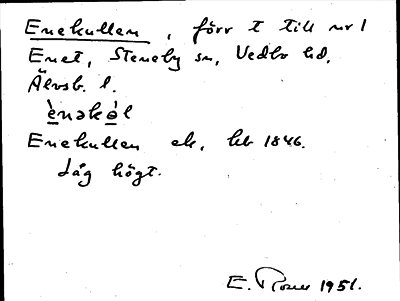 Enekullen, förr t till nr 1
Enet, Steneby sn, Vedbo hd,
Älvsb. l.
ènəkə̀l
Enekullen ek, hb 1846.
Låg högt.
E. 1951.